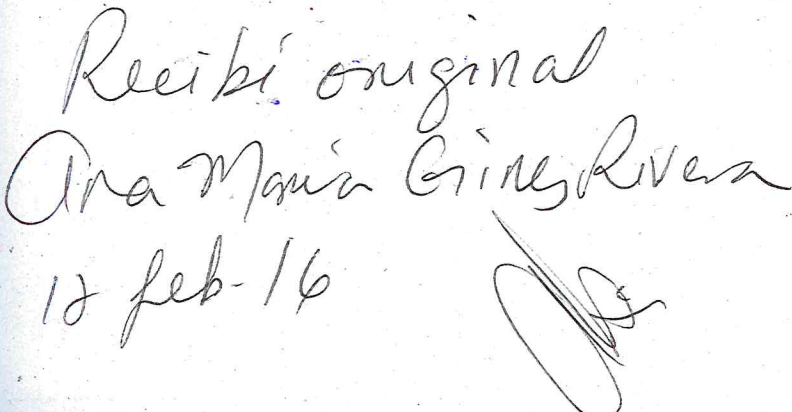 Recibí original
Ana María Gines Rivera
12 feb-16